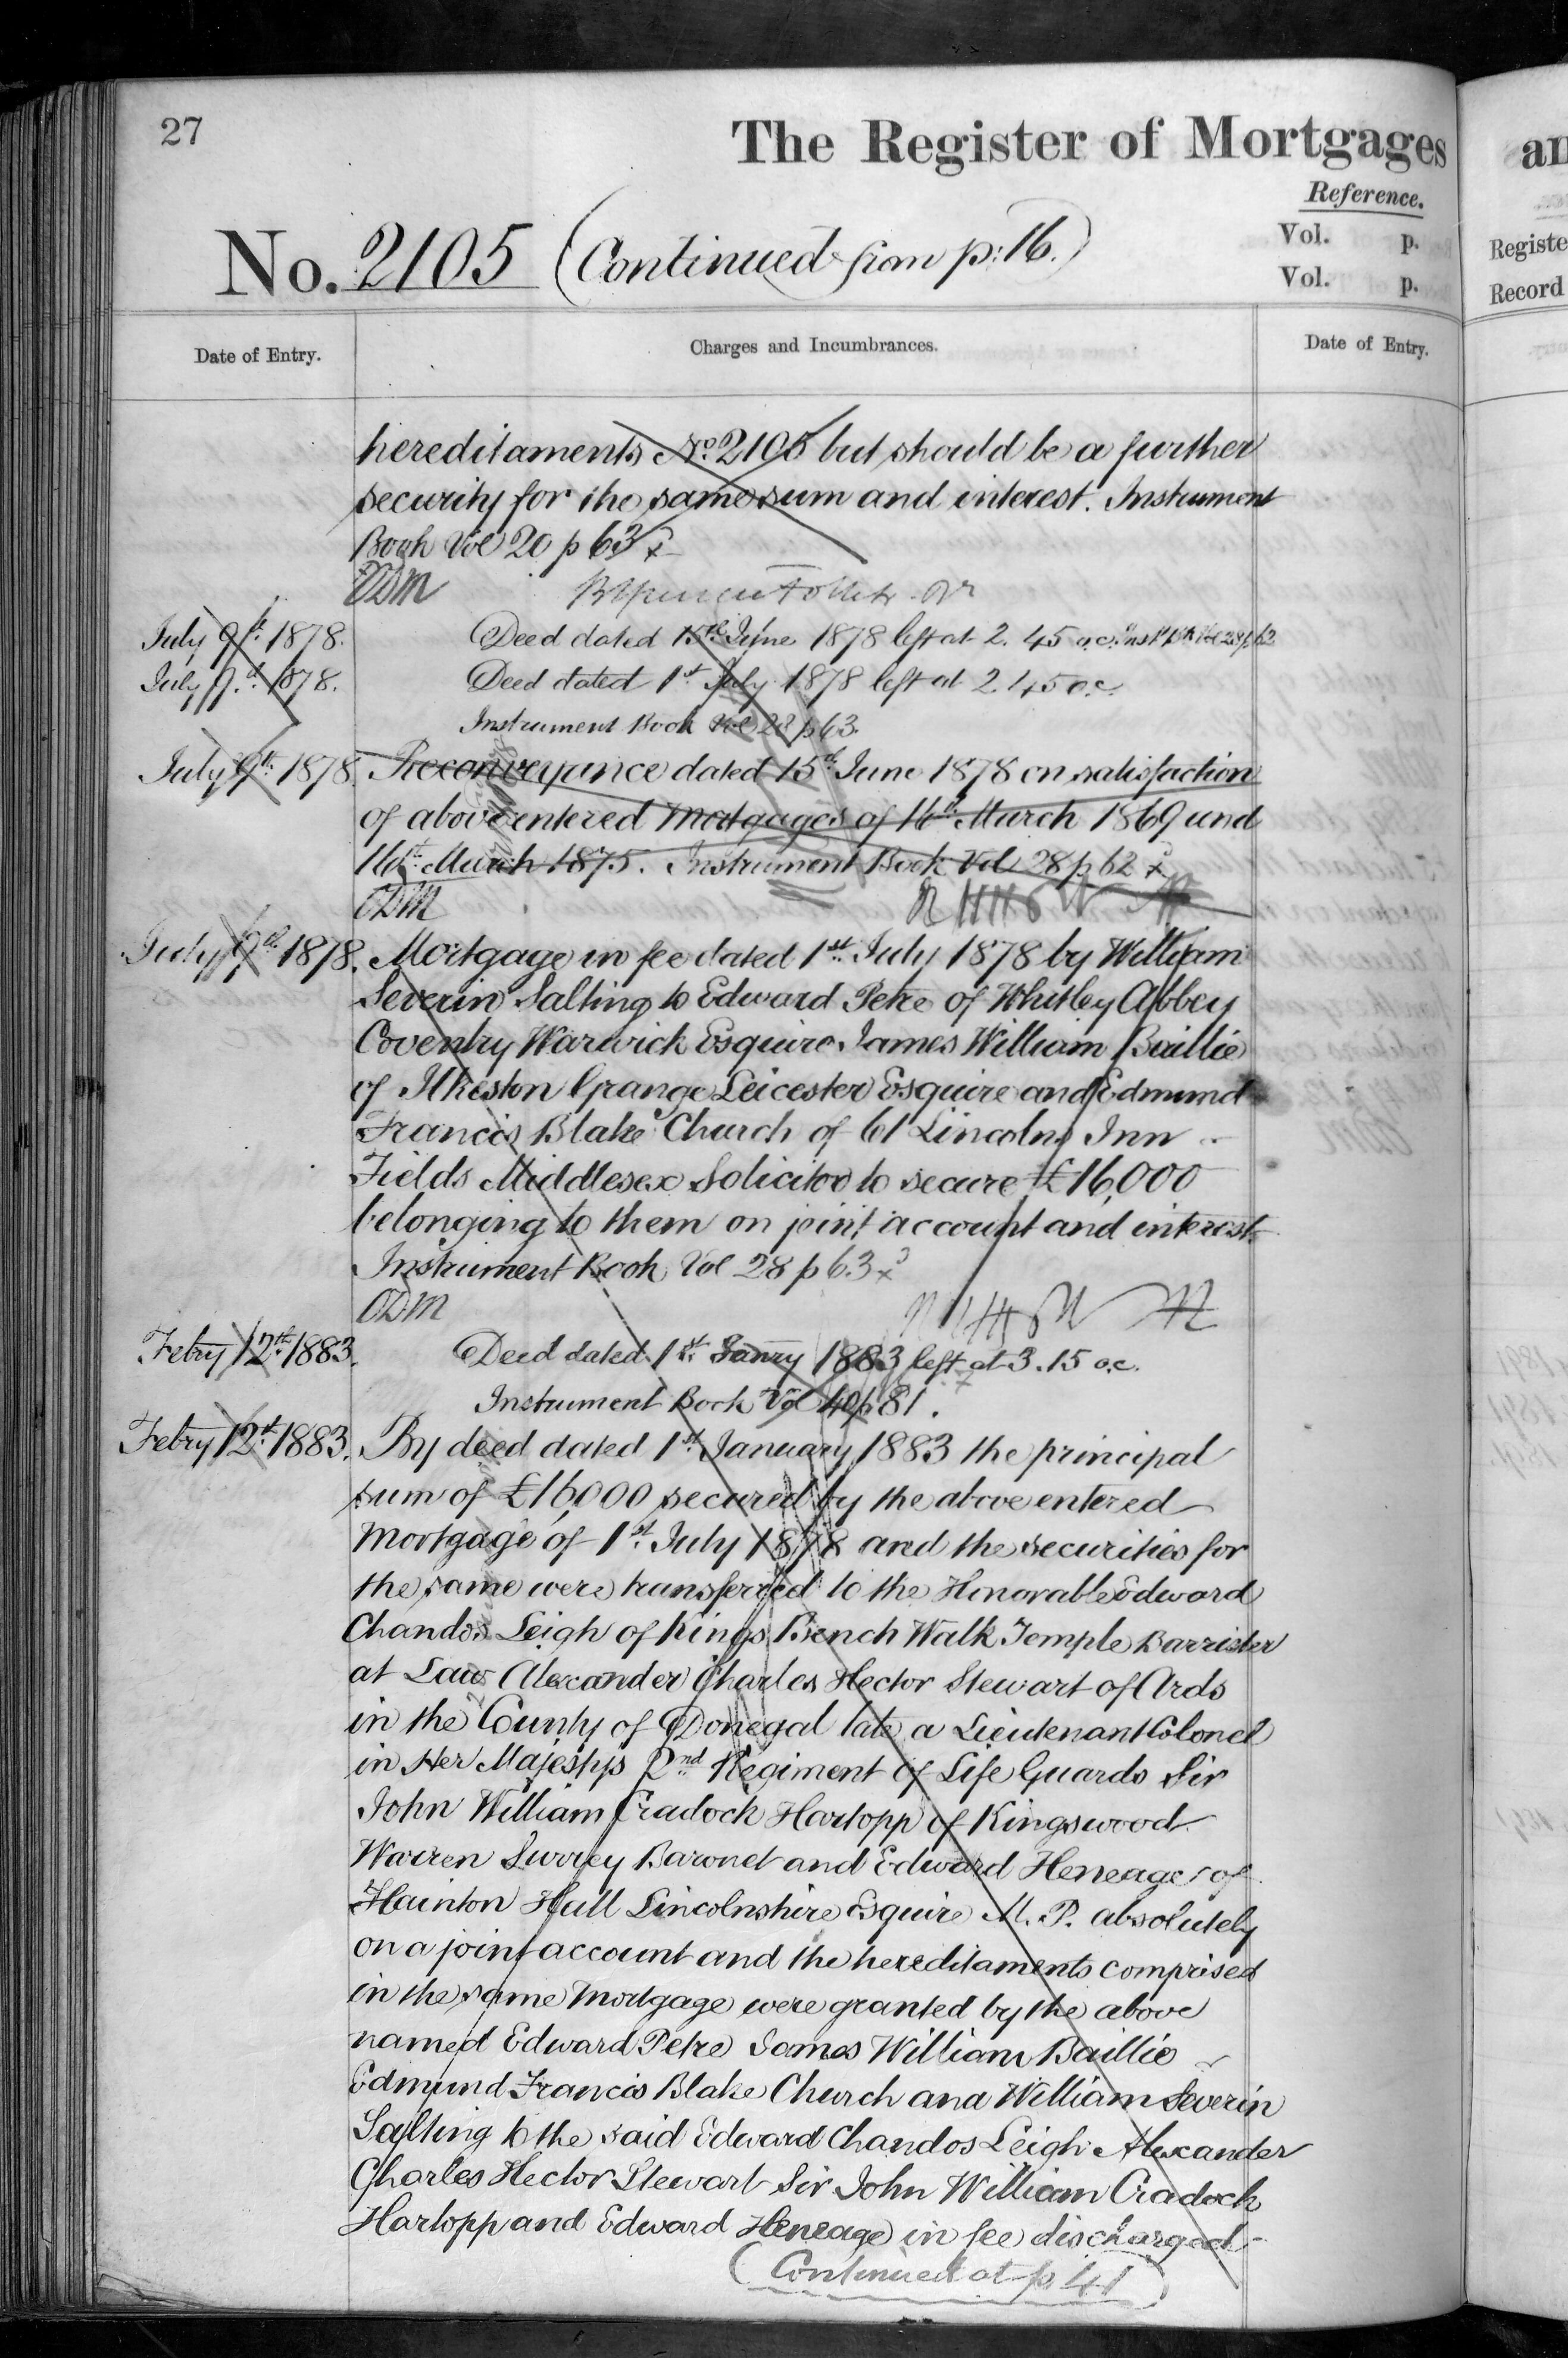 27
The Register of Mortgages
Reference.
Vol. p.
Vol. p.
No. 2105 (Continued from p: 16.)
Date of Entry.
Charges and Incumbrances.
Date of Entry.
hereditaments No. 2105 but should be a further
security for the same sum and interest. Instrument
Book Vol 20 p 63
ODM
July 9th 1878. Deed dated 15th June 1878 left at 2. 45 o.c. Inst Bk Vol 28 p 62
July 9th 1878. Deed dated 1st July 1878 left at 2.45 o.c.
Instrument Book Vol 28 p 63.
July 9th 1878. Reconveyance dated 15th June 1878 on satisfaction
of above entered Mortgages of 16th March 1869 and
16th March 1875. Instrument Book Vol 28 p 62
ODM
July 9th 1878. Mortgage in fee dated 1st July 1878 by William
Severin Salting to Edward Petre of Whitley Abbey
Coventry Warwick Esquire James William Baillie
of Ilkeston Grange Leicester Esquire and Edmund
Francis Blake Church of 61 Lincolns Inn
Fields Middlesex Solicitor to secure £16,000
belonging to them on joint account and interest.
Instrument Book Vol 28 p 63
ODM
Febry 12th 1883. Deed dated 1st Janry 1883 left at 3.15 o.c.
Instrument Book Vol 40 p 81.
Febry 12th 1883. By deed dated 1st January 1883 the principal
sum of £16,000 secured by the above entered
Mortgage of 1st July 1878 and the securities for
the same were transferred to the Honorable Edward
Chandos Leigh of Kings Bench Walk Temple Barrister
at Law Alexander Charles Hector Stewart of Ards
in the County of Donegal late a Lieutenant Colonel
in Her Majestys 2nd Regiment of Life Guards Sir
John William Cradock Hartopp of Kingswood
Warren Surrey Baronet and Edward Heneage of
Hainton Hall Lincolnshire Esquire M. P. absolutely
on a joint account and the hereditaments comprised
in the same Mortgage were granted by the above
named Edward Petre James William Baillie
Edmund Francis Blake Church and William Severin
Salting to the said Edward Chandos Leigh Alexander
Charles Hector Stewart Sir John William Cradock
Hartopp and Edward Heneage in fee discharged
(Continued at p 41)
an
Registe
Record
1891
1891